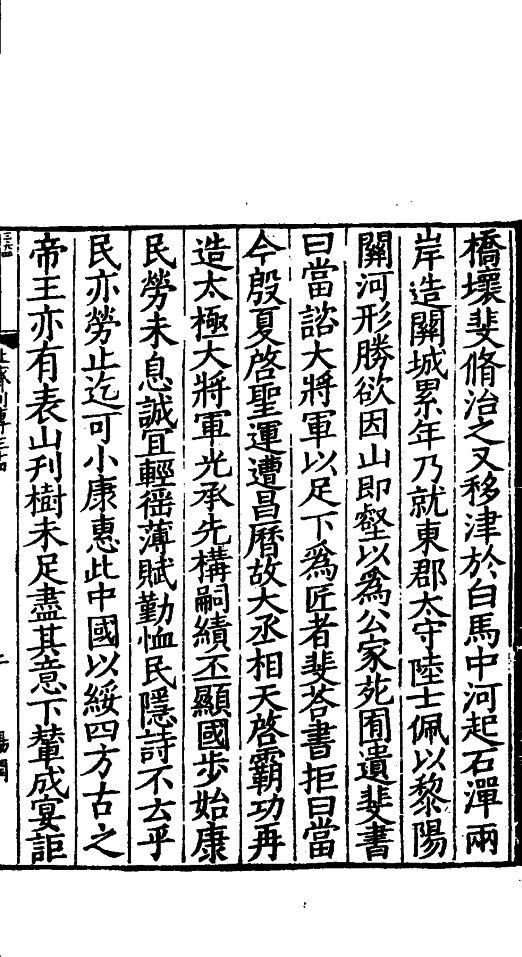 橋壞斐脩治之又移津於白馬中河起石潬兩
岸造關城累年乃就東郡太守陸士佩以黎陽
關河形勝欲因山即壑以爲公家苑囿遺斐書
曰當諮大將軍以足下爲匠者斐荅書拒曰當
今殷夏啓聖運遭昌曆故大丞相天啓霸功再
造太極大將軍光承先構嗣績丕顯國步始康
民勞未息誠宜輕徭薄賦勤恤民隱詩不云乎
民亦勞止迄可小康惠此中國以綏四方古之
帝王亦有表山刋樹未足盡其意下輦成宴詎